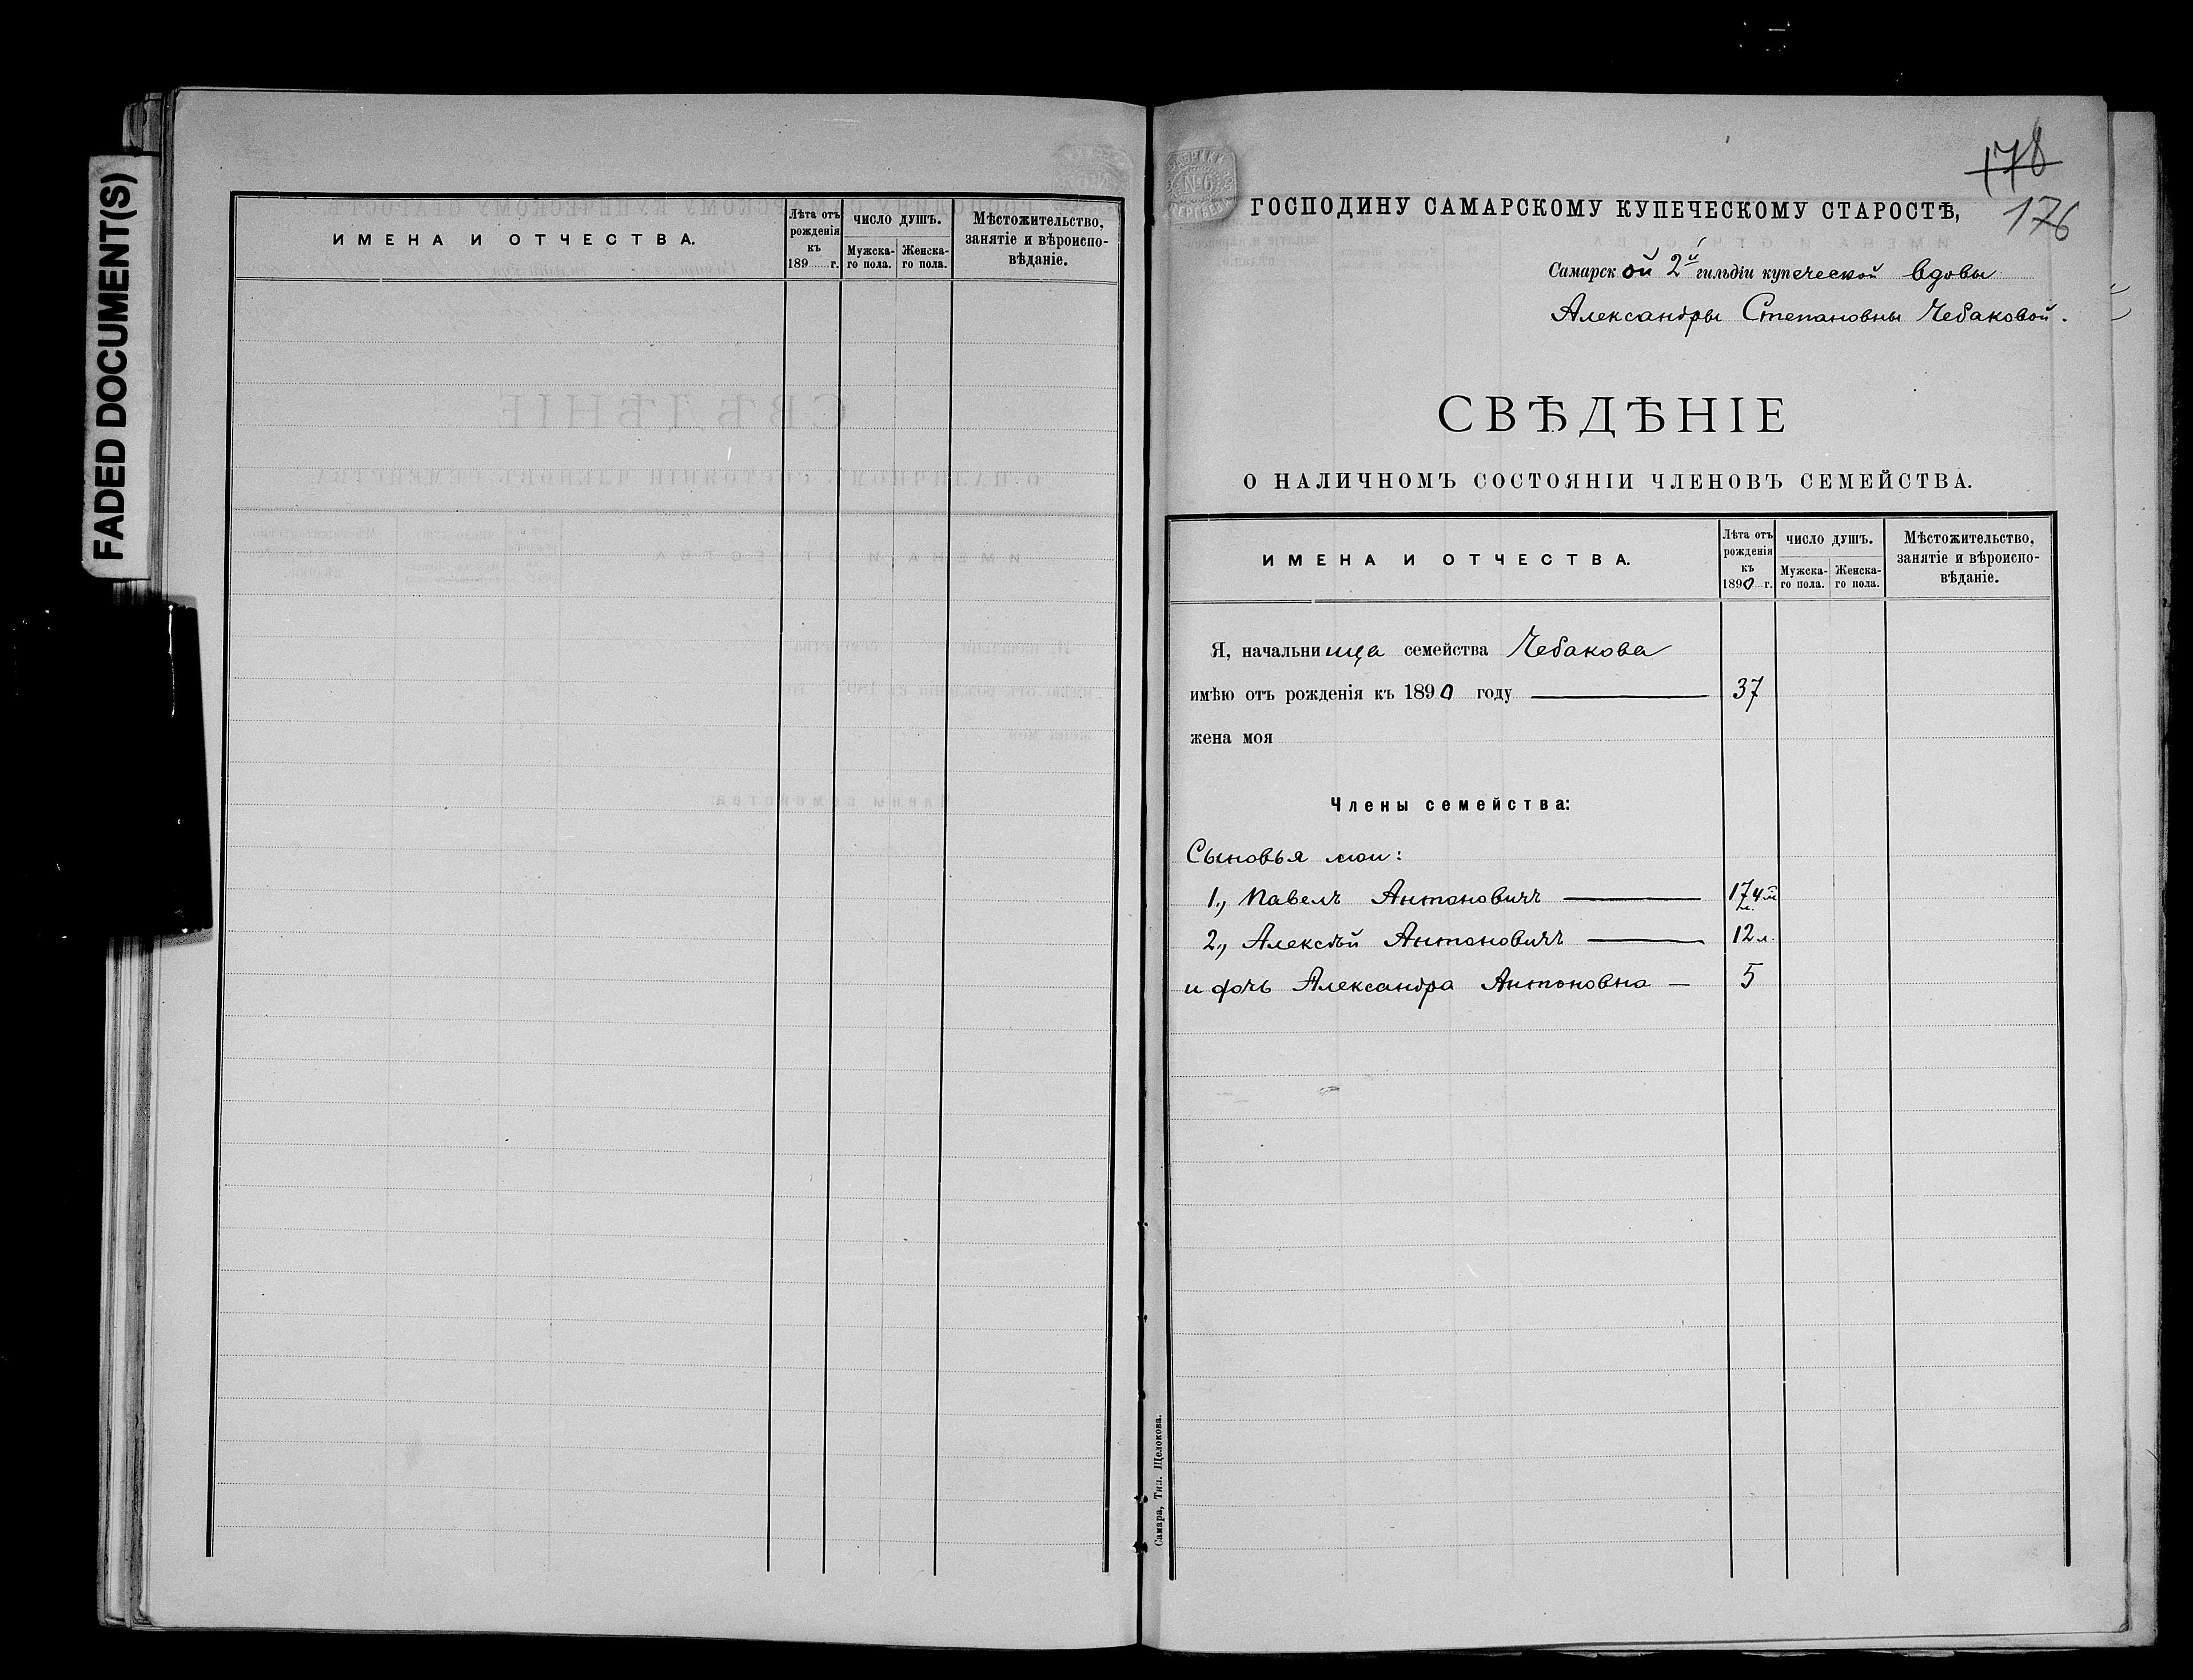 FADED DOCUMENT(S)
ИМЕНА И ОТЧЕСТВА.
Лѣта отъ рожденія къ 189 г.
ЧИСЛО ДУШЪ.
Мужска-го пола.
Женска-го пола.
Мѣстожительство, занятіе и вѣроиспо-вѣданіе.
178
176
№6
ГОСПОДИНУ САМАРСКОМУ КУПЕЧЕСКОМУ СТАРОСТѢ,
Самарской 2й гильдіи купеческой вдовы
Александры Степановны Чебаковой.
СВѢДѢНІЕ
О НАЛИЧНОМЪ СОСТОЯНІИ ЧЛЕНОВЪ СЕМЕЙСТВА.
ИМЕНА И ОТЧЕСТВА.
Лѣта отъ рожденія къ 1890 г.
ЧИСЛО ДУШЪ.
Мужска-го пола.
Женска-го пола.
Мѣстожительство, занятіе и вѣроиспо-вѣданіе.
Я, начальница семейства Чебакова
имѣю отъ рожденія къ 1890 году 37
жена моя
Члены семейства:
Сыновья мои:
1., Павелъ Антоновичъ 17
2., Алексѣй Антоновичъ 12 л.
и дочь Александра Антоновна — 5
Самара, Тип. Щелокова.